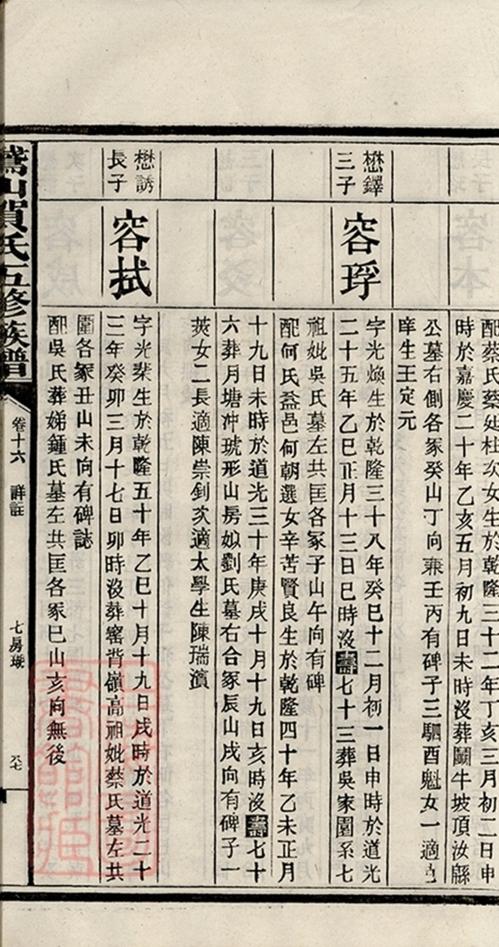 配蔡氏蔡延柱次女生於乾隆三十二年丁亥三月初二日申
時於嘉慶二十年乙亥五月初九日未時沒葬鬬牛坡頂汝縣
公墓右側各冢癸山丁向兼壬丙有碑子三駟酉魁女一適邑
庠生王定元
懋鐸
三子
容琈
字光煥生於乾隆三十八年癸巳十二月初一日申時於道光
二十五年乙巳正月十三日巳時沒壽七十三葬吳家園系七
祖妣吳氏墓左共匡各冢子山午向有碑
配何氏益邑何朝選女辛苦賢良生於乾隆四十年乙未正月
十九日未時於道光三十年庚戌十月十九日亥時沒壽七十
六葬月塘冲琥形山房姒劉氏墓右合冢辰山戌向有碑子一
莢女二長適陳崇釗次適太學生陳瑞濱
懋誘
長子
容拭
字光棐生於乾隆五十年乙巳十月十九日戌時於道光二十
三年癸卯三月十七日卯時沒葬窰背嶺高祖妣蔡氏墓左共
圍各冢丑山未向有碑誌
配吳氏葬娣鍾氏墓左共匡各冢巳山亥向無後
山賀氏五修族譜
卷十六
詳註
七房璥